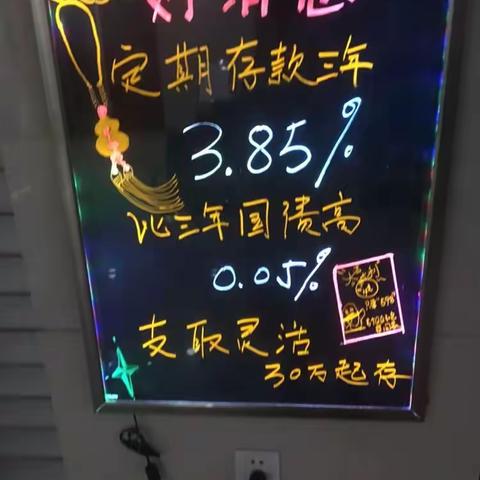 好消息
定期存款三年
3.85%
比三年国债高
0.05%
支取灵活
30万起存